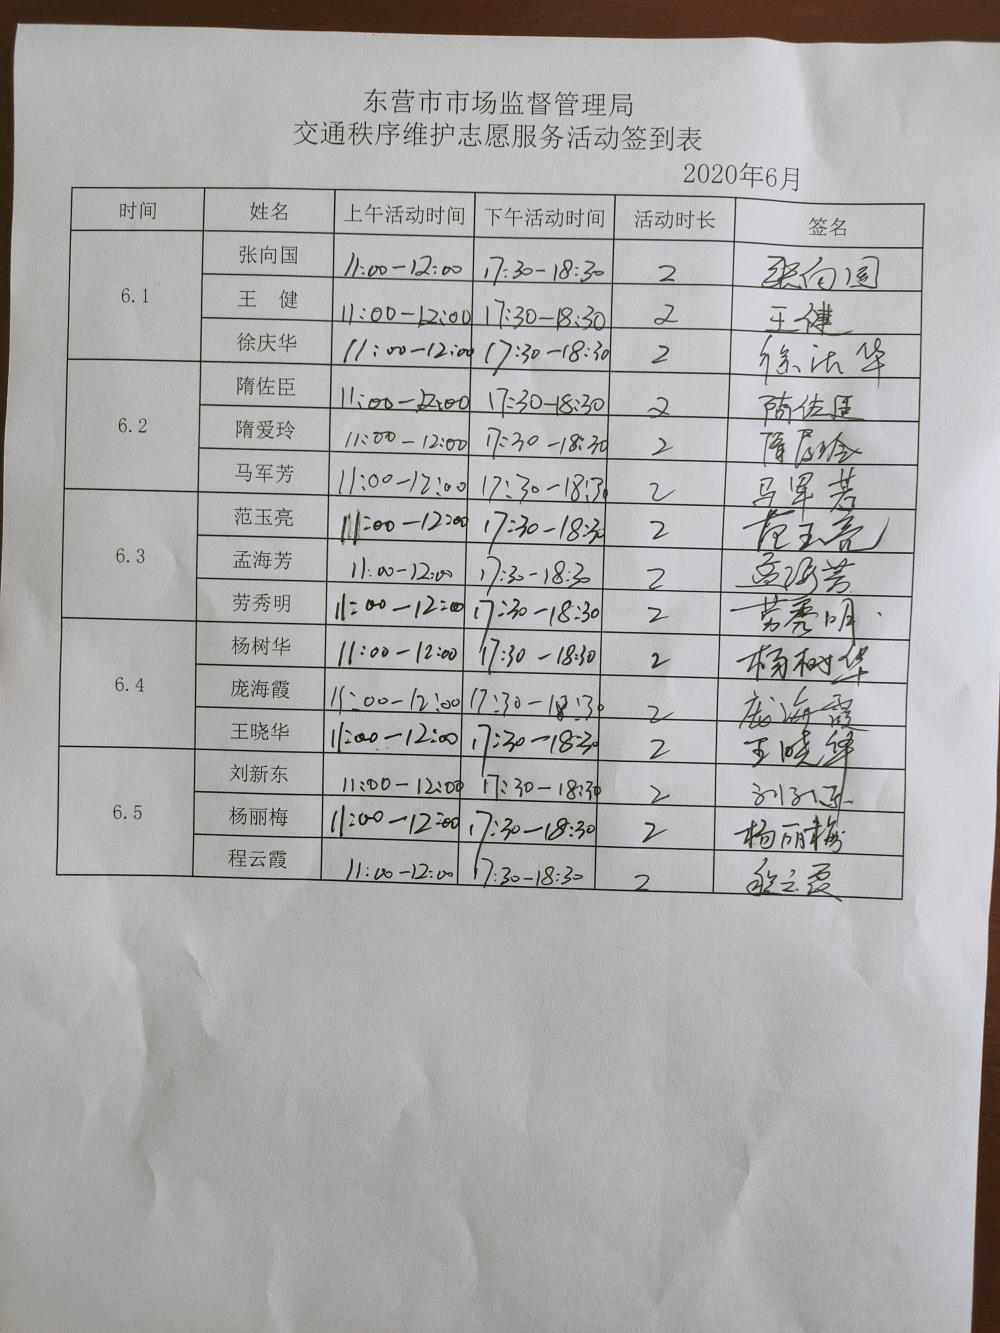 东营市市场监督管理局
交通秩序维护志愿服务活动签到表
2020年6月
时间 姓名 上午活动时间 下午活动时间 活动时长 签名
6.1 张向国 11:00-12:00 17:30-18:30 2 张向国
王 健 11:00-12:00 17:30-18:30 2 王健
徐庆华 11:00-12:00 17:30-18:30 2 徐庆华
6.2 隋佐臣 11:00-12:00 17:30-18:30 2 隋佐臣
隋爱玲 11:00-12:00 17:30-18:30 2 隋爱玲
马军芳 11:00-12:00 17:30-18:30 2 马军芳
6.3 范玉亮 11:00-12:00 17:30-18:30 2 范玉亮
孟海芳 11:00-12:00 17:30-18:30 2 孟海芳
劳秀明 11:00-12:00 17:30-18:30 2 劳秀明
6.4 杨树华 11:00-12:00 17:30-18:30 2 杨树华
庞海霞 11:00-12:00 17:30-18:30 2 庞海霞
王晓华 11:00-12:00 17:30-18:30 2 王晓华
6.5 刘新东 11:00-12:00 17:30-18:30 2 刘新东
杨丽梅 11:00-12:00 17:30-18:30 2 杨丽梅
程云霞 11:00-12:00 17:30-18:30 2 程云霞